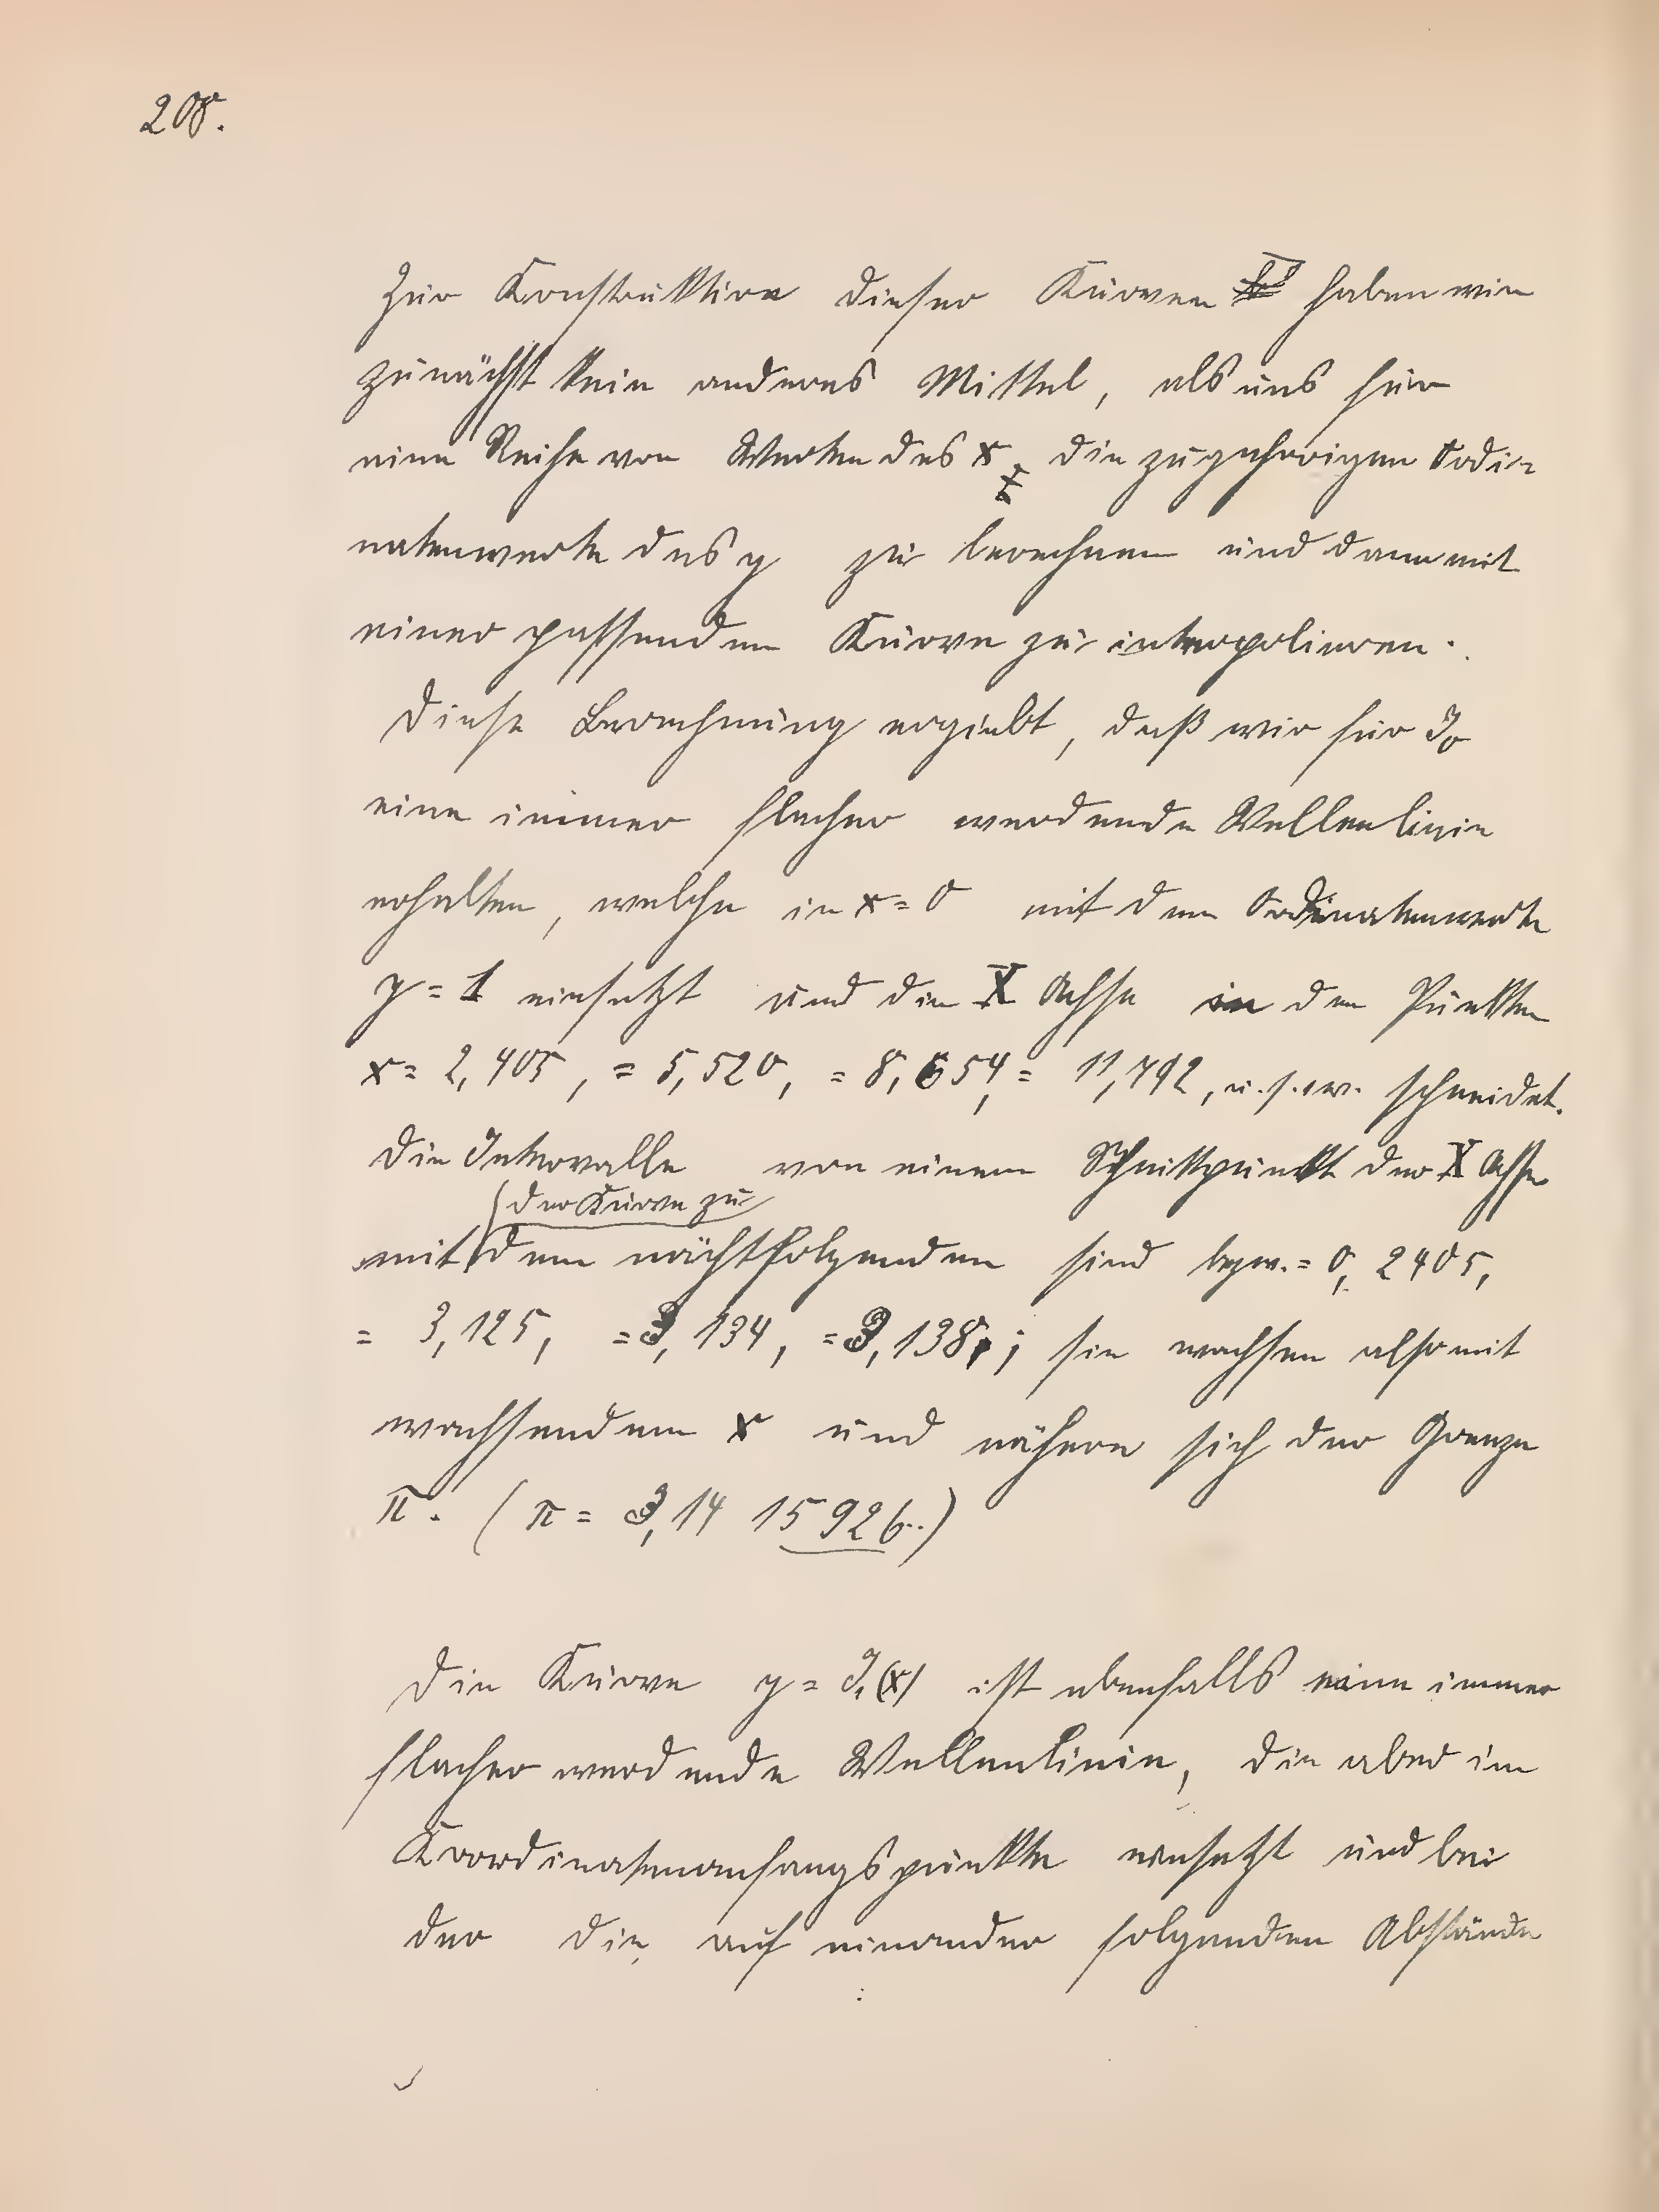 208.
Zur Konstruktion dieser Kurven haben wir
zunächst kein anderes Mittel, als uns für
eine Reihe von Werten des x die zugehörigen Ordi-
natenwerte des y zu berechnen und dann mit
einer passenden Kurve zu interpolieren.
Diese Berechnung ergiebt, daß wir für J₀
eine immer flacher werdende Wellenlinie
erhalten, welche in x = 0 mit dem Ordinatenwerte
y = 1 einsetzt und die X Achse in den Punkten
x = 2,405, = 5,520, = 8,654, = 11,792, u.s.w. schneidet.
Die Intervalle von einem Schnittpunkt der X Achse
der Kurve zu
mit dem nächstfolgenden sind bezw. = 0, 2405,
= 3,125, = 3,134, = 3,138, ; sie wachsen also mit
wachsendem x und nähern sich der Grenze
π. ( π = 3,14 15 926..)
Die Kurve y = J₁(x) ist ebenfalls eine immer
flacher werdende Wellenlinie, die aber im
Koordinatenanfangspunkte einsetzt und bei
der die auf einander folgenden Abstände